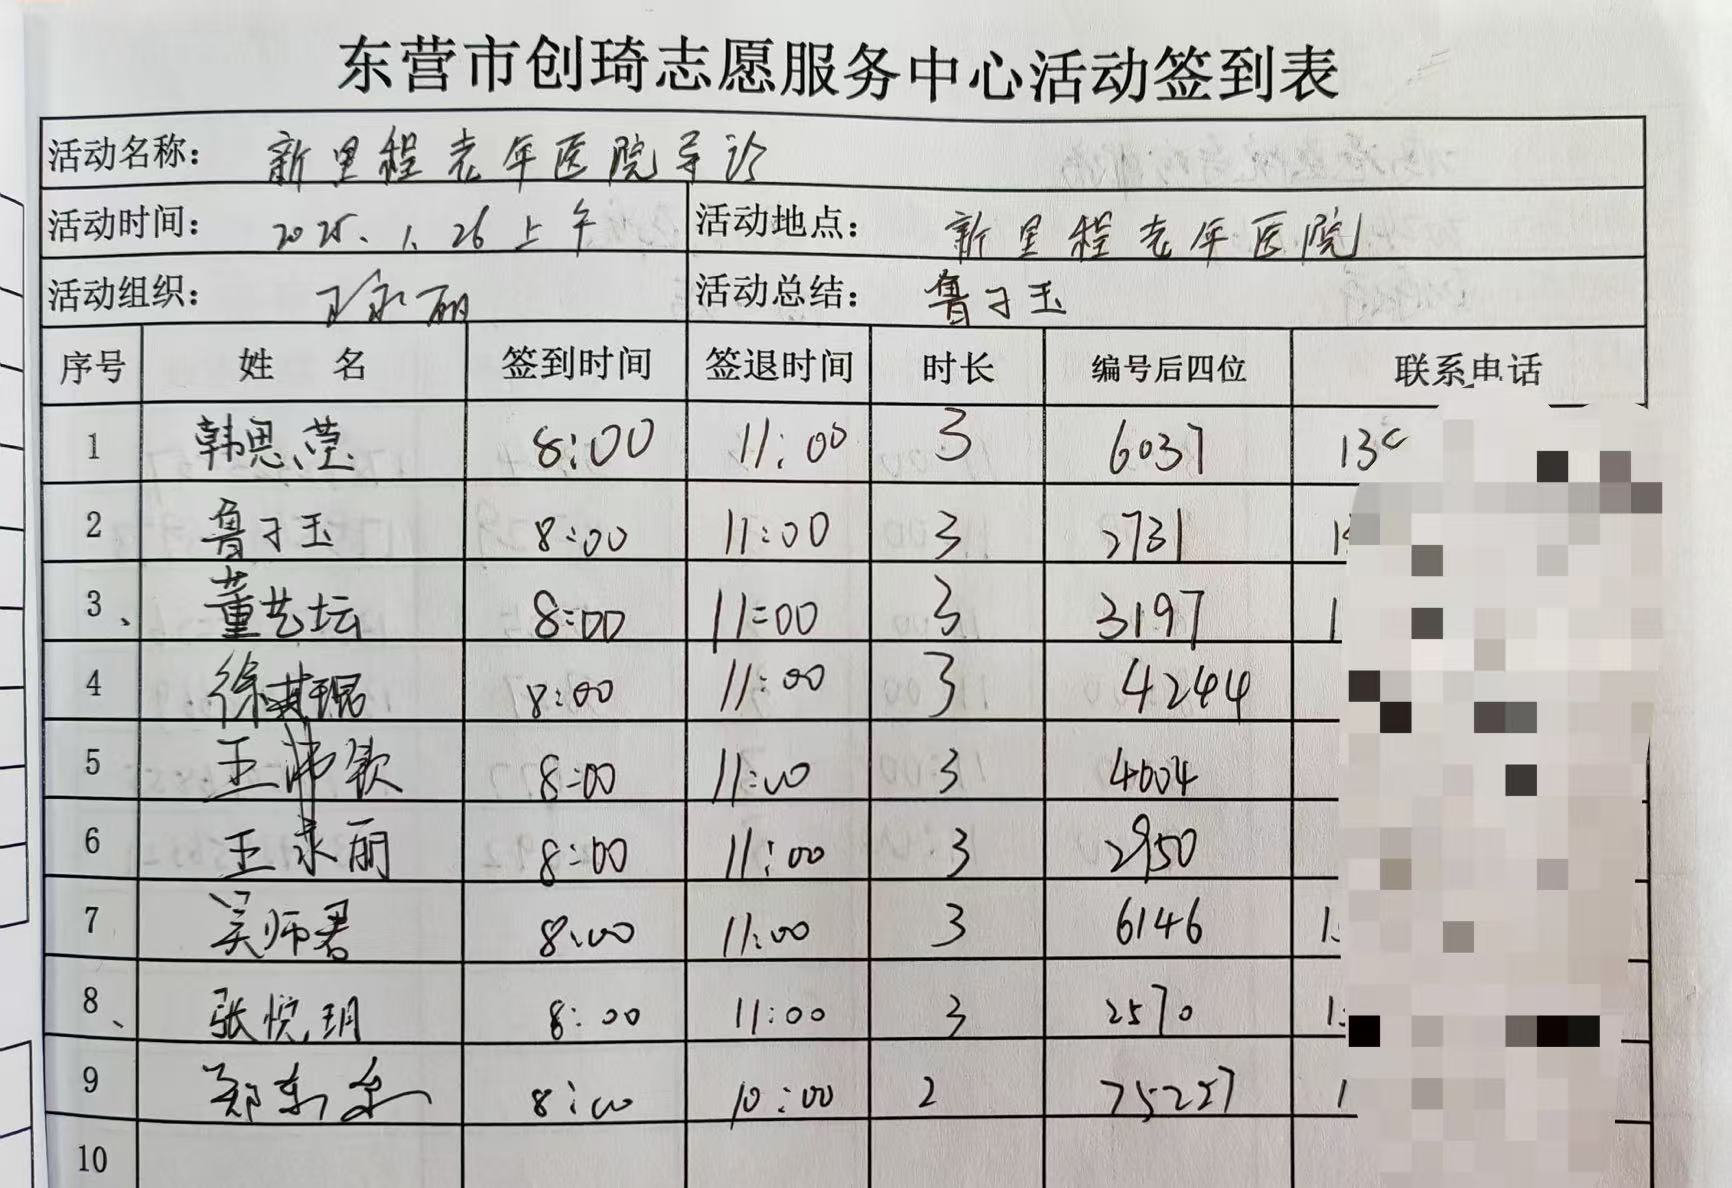 东营市创琦志愿服务中心活动签到表
活动名称： 新里程老年医院导诊
活动时间： 2025.1.26上午 活动地点： 新里程老年医院
活动组织： 王永丽 活动总结： 鲁子玉
序号 姓 名 签到时间 签退时间 时长 编号后四位 联系电话
1 韩思莹 8:00 11:00 3 6037
2 鲁子玉 8:00 11:00 3 2731
3、 董艺坛 8:00 11:00 3 3197
4 徐其琨 8:00 11:00 3 4244
5 王沛钦 8:00 11:00 3 4004
6 王永丽 8:00 11:00 3 2950
7 吴师君 8:00 11:00 3 6146
8、 张悦玥 8:00 11:00 3 2570
9 郑东 8:00 10:00 2 75257
10